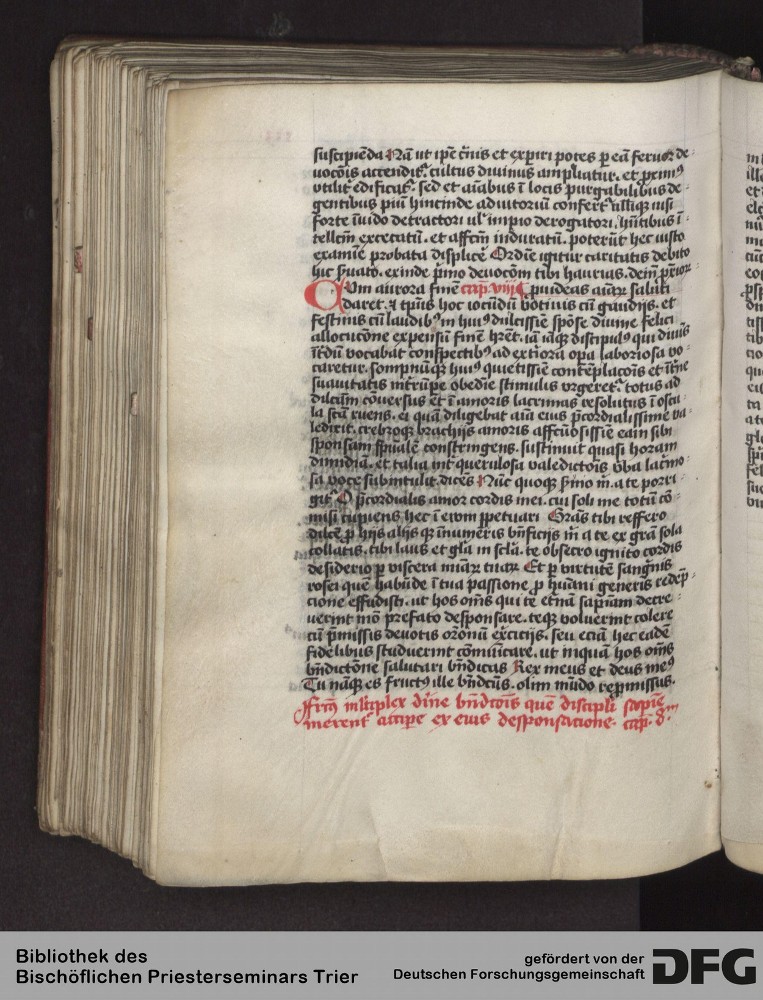 suscipiēda Nā ut ip̄e c̄nis et experiri potes p eā feruor de
uocōis accendit᷑. cultus diuinus ampliatur. et prximꝰ
vtilit᷑ edificat᷑. sed et aīabus ī locis purgabilibus de
gentibus piū hincinde adiutoriū confert᷑ nisi
forte īuido detractori ul᷑ impio derogatori. hn̄tibus ī
tellcm̄ excecatū. et affcm̄ induratū. poterūt hec iusto
examīe probata displicē Ordīe igitur caritatis debito
hic ẜuato. exinde p̄mo deuocōm tibi haurias. dein̄ prior
CVm aurora finē cap. viij puideas aūꝝ saluti
daret. ⁊ tp̄us hoc iocūdū votiuis cū gaudijs. et
festiuis cū laudibꝰ in huiꝰ dulcissīe spōse diuīe felici
allocucōne expensū finē hr̄et. iā īaꝗ discipulꝰ qui diuīs
īt̄dū vocabat conspectibꝰ ad extīora opa laboriosa vo
caretur. sompnūꝗ huiꝰ quietissīe contēplacōis et īt̄ne
suauitatis īnt̄rūpe obedīe stimulis vrgeret᷑. totus ad
dilcām cōuersus et ī amoris lacrimas resolutus ī oscu
la scā ruens. ei quā diligebat aīa eius p̄cordialissime va
ledixit. crebroꝗ brachijs amoris affcūosissīe eam sibi
sponsam spūalē constringens. sustinuit quasi horam
dimidiā. et talia int᷑ querulosa valedictōis v̄ba lacīmo
sa voce subintulit. dicēs Nūc quoꝗ p̄mo m̄. a te porri
git᷑ O p̄cordialis amor cordis mei. cui soli me totū cō
misi cupiens hec ī euom ppetuari Grās tibi reffero
dilcē p hijs alijsꝗ īnumeris bn̄ficijs m̄ a te ex grā sola
collatis. tibi laus et glā in sclā. te obsecro ignito cordis
desiderio p viscera miāꝝ tuaꝝ Et p virtutē sangnīs
rosei quē habūde ī tua passione p huāni generis redēp
cione effudisti. ut hos om̄s qui te et̄nā sapīam decre
uerint mō prefato desponsare. teꝗ voluerint colere
cū p̄missis deuotis oz̄onū excīcijs. seu eciā hec eadē
fidelibus studuerint cōmūicare. ut inquā hos om̄s
bn̄dictōne salutari bn̄dicas Rex meus et deus meꝰ
Tu nāꝗ es fructꝰ ille bn̄dcūs. olim mūdo repromissus.
Frūs mltiplex diīne bn̄dcōis quē discipli sapīe
merent᷑ accipe ex eius desponsacione. cap. 8ᵐ
Bibliothek des
Bischöflichen Priesterseminars Trier
gefördert von der
Deutschen Forschungsgemeinschaft
DFG